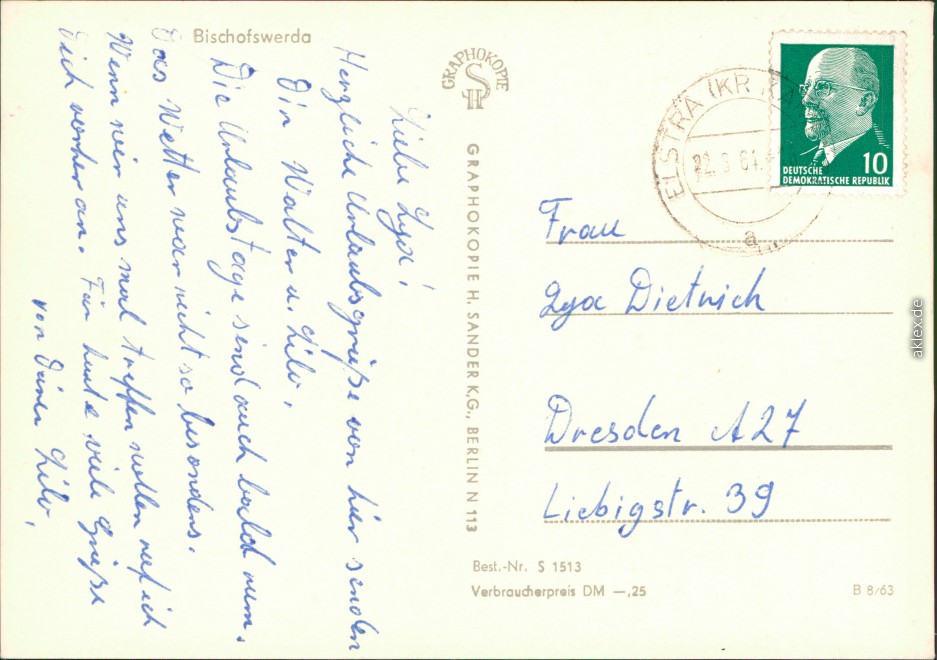 Bischofswerda
Liebe Lya!
Herzliche Urlaubsgrüße von hier senden
Dir Walter u. Lilo.
Die Urlaubstage sind auch bald rum.
Das Wetter war nicht so besonders.
Wenn wir uns mal treffen wollen ruf ich
Dich vorher an. Für heute viele Grüße
von Deiner Lilo.
GRAPHOKOPIE
SH
GRAPHOKOPIE H. SANDER K.G., BERLIN N 113
ELSTRA (KR. KA
22.8.64.
a
10
DEUTSCHE
DEMOKRATISCHE REPUBLIK
Frau
Lya Dietrich
Dresden A27
Liebigstr. 39
Best.-Nr. S 1513
Verbraucherpreis DM —,25
B 8/63
aklex.de